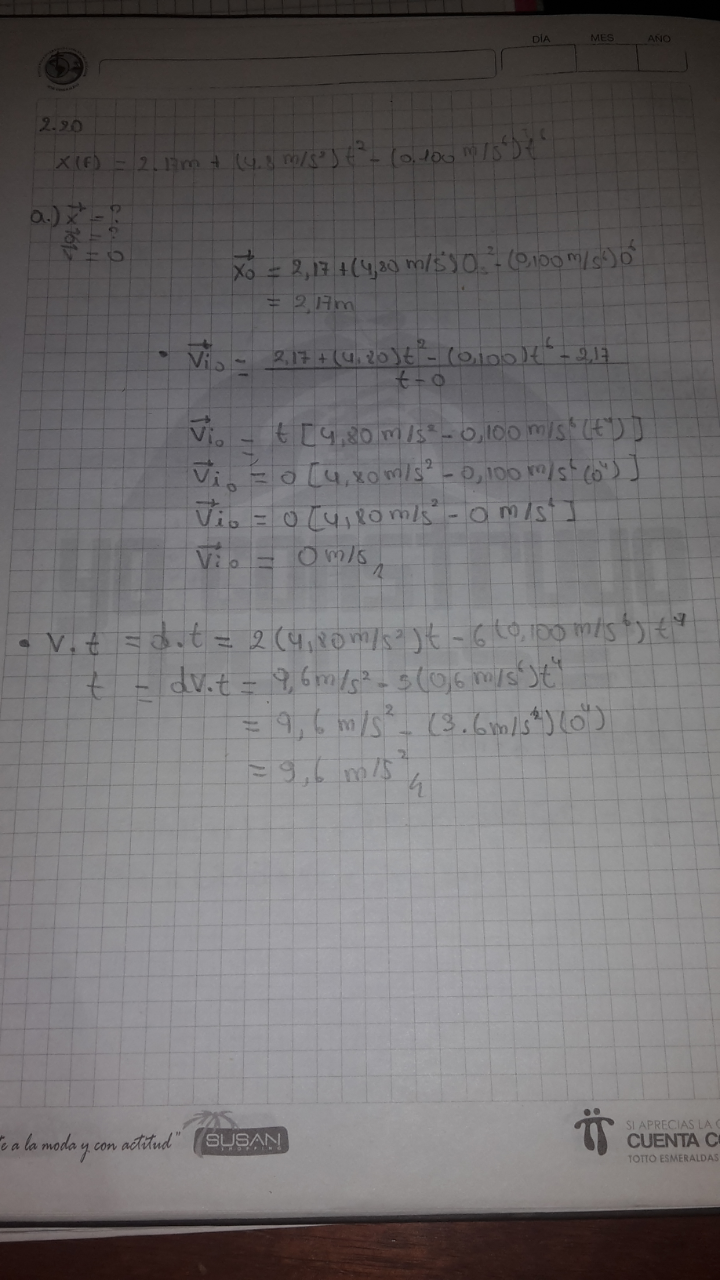 DÍA MES AÑO
2.20
x(t) = 2.17m + (4.8 m/s²) t² - (0,100 m/s⁶) t⁶
a.)
x⃗o = 2,17 + (4,80 m/s²) 0² - (0,100 m/s⁶) 0⁶
= 2,17m
• V⃗io = 2,17 + (4,80) t² - (0,100) t⁶ - 2,17
t - 0
V⃗io = t [4,80 m/s² - 0,100 m/s⁶ (t⁴)]
V⃗io = 0 [4,80 m/s² - 0,100 m/s⁶ (0⁴)]
V⃗io = 0 [4,80 m/s² - 0 m/s⁶]
V⃗io = 0 m/s
• V.t = d.t = 2(4,80 m/s²) t - 6(0,100 m/s⁶) t
t = dv.t = 9,6 m/s² - 5(0,6 m/s⁶) t⁴
= 9,6 m/s² - (3.6 m/s²)(0⁴)
= 9,6 m/s²
a la moda y con actitud"
SUSAN
SI APRECIAS LA
CUENTA
TOTTO ESMERALDAS